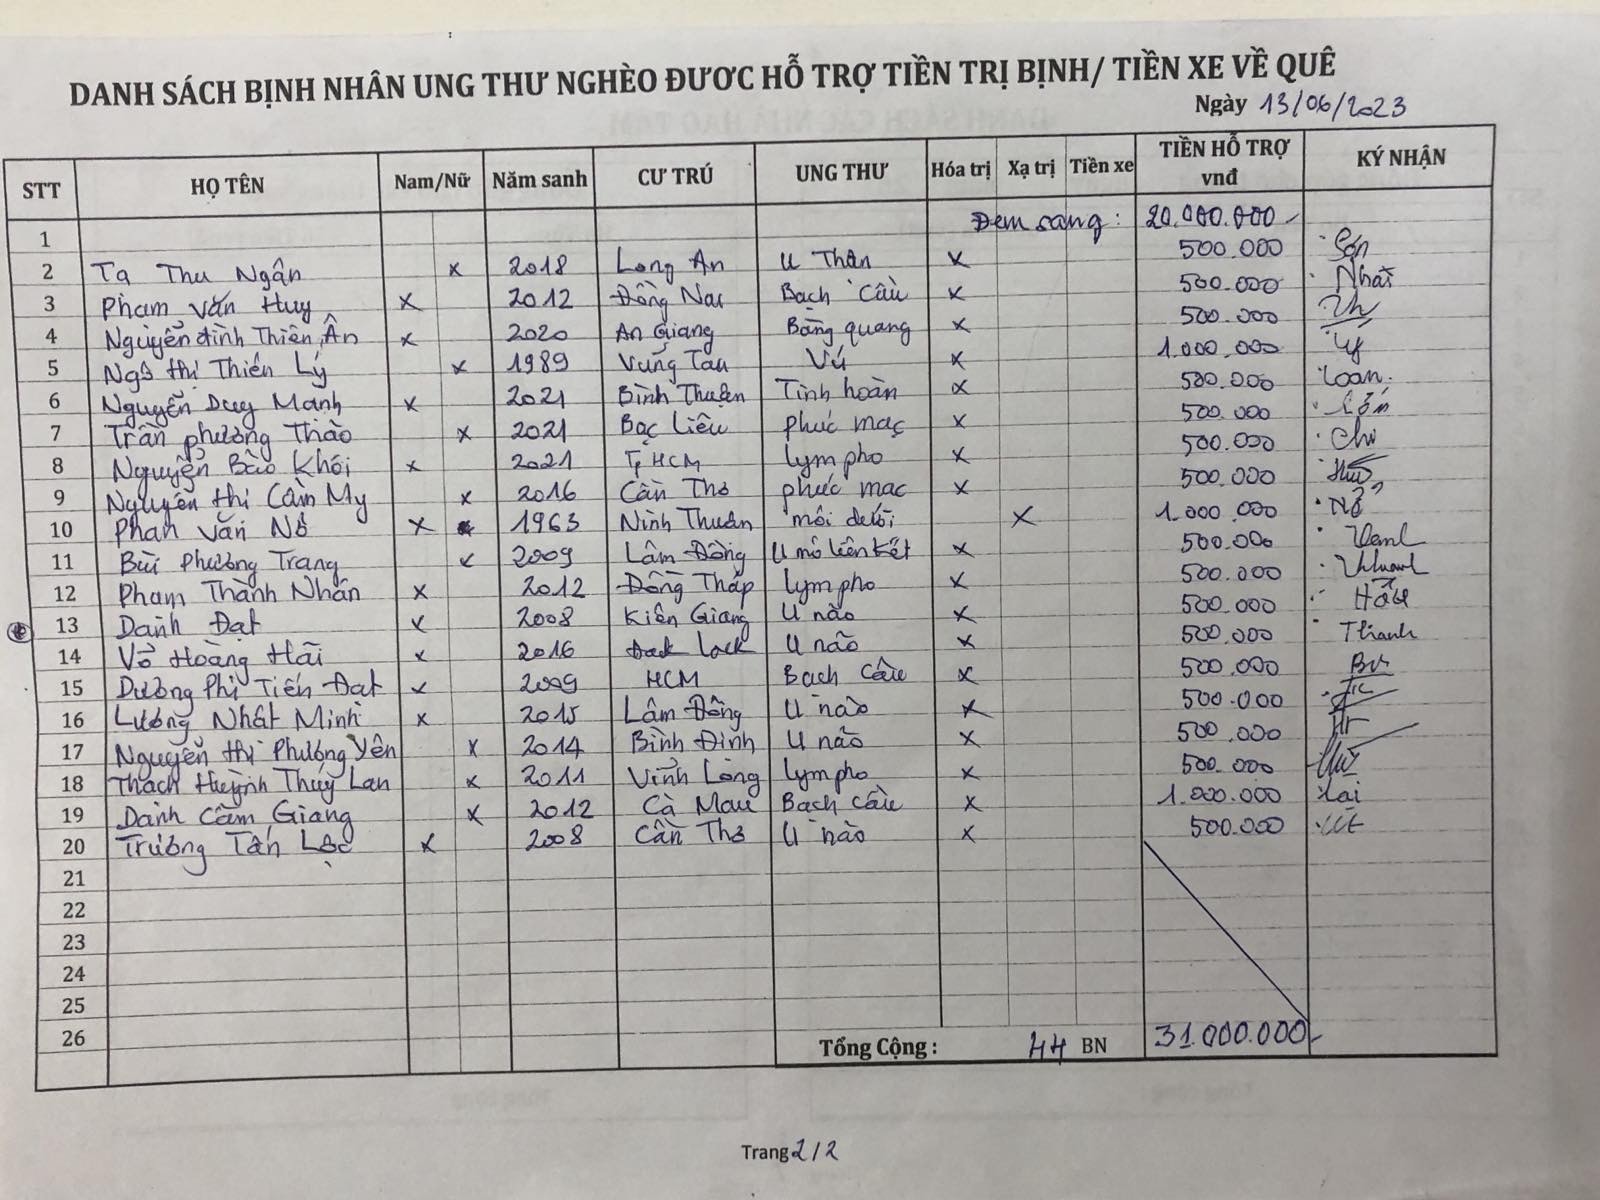 DANH SÁCH BỊNH NHÂN UNG THƯ NGHÈO ĐƯƠC HỖ TRỢ TIỀN TRỊ BỊNH/ TIỀN XE VỀ QUÊ
Ngày 13/06/2023
STT HỌ TÊN Nam/Nữ Năm sanh CƯ TRÚ UNG THƯ Hóa trị Xạ trị Tiền xe TIỀN HỖ TRỢ vnđ KÝ NHẬN
1 Đem sang: 20.000.000
2 Tạ Thu Ngân x 2018 Long An U Thân x 500.000
3 Phạm Văn Huy x 2012 Đồng Nai Bạch Cầu x 500.000 Nhất
4 Nguyễn đình Thiên Ân x 2020 An Giang Bàng quang x 500.000
5 Ngô thị Thiên Lý x 1989 Vũng Tàu Vú x 1.000.000 Lý
6 Nguyễn Duy Mạnh x 2021 Bình Thuận Tinh hoàn x 500.000 Loan
7 Trần phương Thảo x 2021 Bạc Liêu phúc mạc x 500.000
8 Nguyễn Bảo Khôi x 2021 T HCM lympho x 500.000 Chi
9 Nguyễn thị Cẩm My x 2016 Cần Thơ phúc mạc x 500.000
10 Phan Văn Nở x 1963 Ninh Thuận môi dưới x 1.000.000 Nở
11 Bùi Phương Trang x 2009 Lâm Đồng U mô liên kết x 500.000
12 Phạm Thành Nhân x 2012 Đồng Tháp lympho x 500.000
13 Danh Đạt x 2008 Kiên Giang U não x 500.000
14 Võ Hoàng Hải x 2016 Đack lack U não x 500.000 Thanh
15 Dương Phi Tiến Đạt x 2009 HCM Bạch cầu x 500.000
16 Lương Nhật Minh x 2015 Lâm Đồng U não x 500.000
17 Nguyễn thị Phương Yên x 2014 Bình Định U não x 500.000
18 Thạch Huỳnh Thúy Lan x 2011 Vĩnh Long lympho x 500.000
19 Danh Cẩm Giang x 2012 Cà Mau Bạch cầu x 1.000.000
20 Trương Tấn Lộc x 2008 Cần Thơ U não x 500.000
21
22
23
24
25
26
Tổng Cộng : 44 BN 31.000.000
Trang 2/2